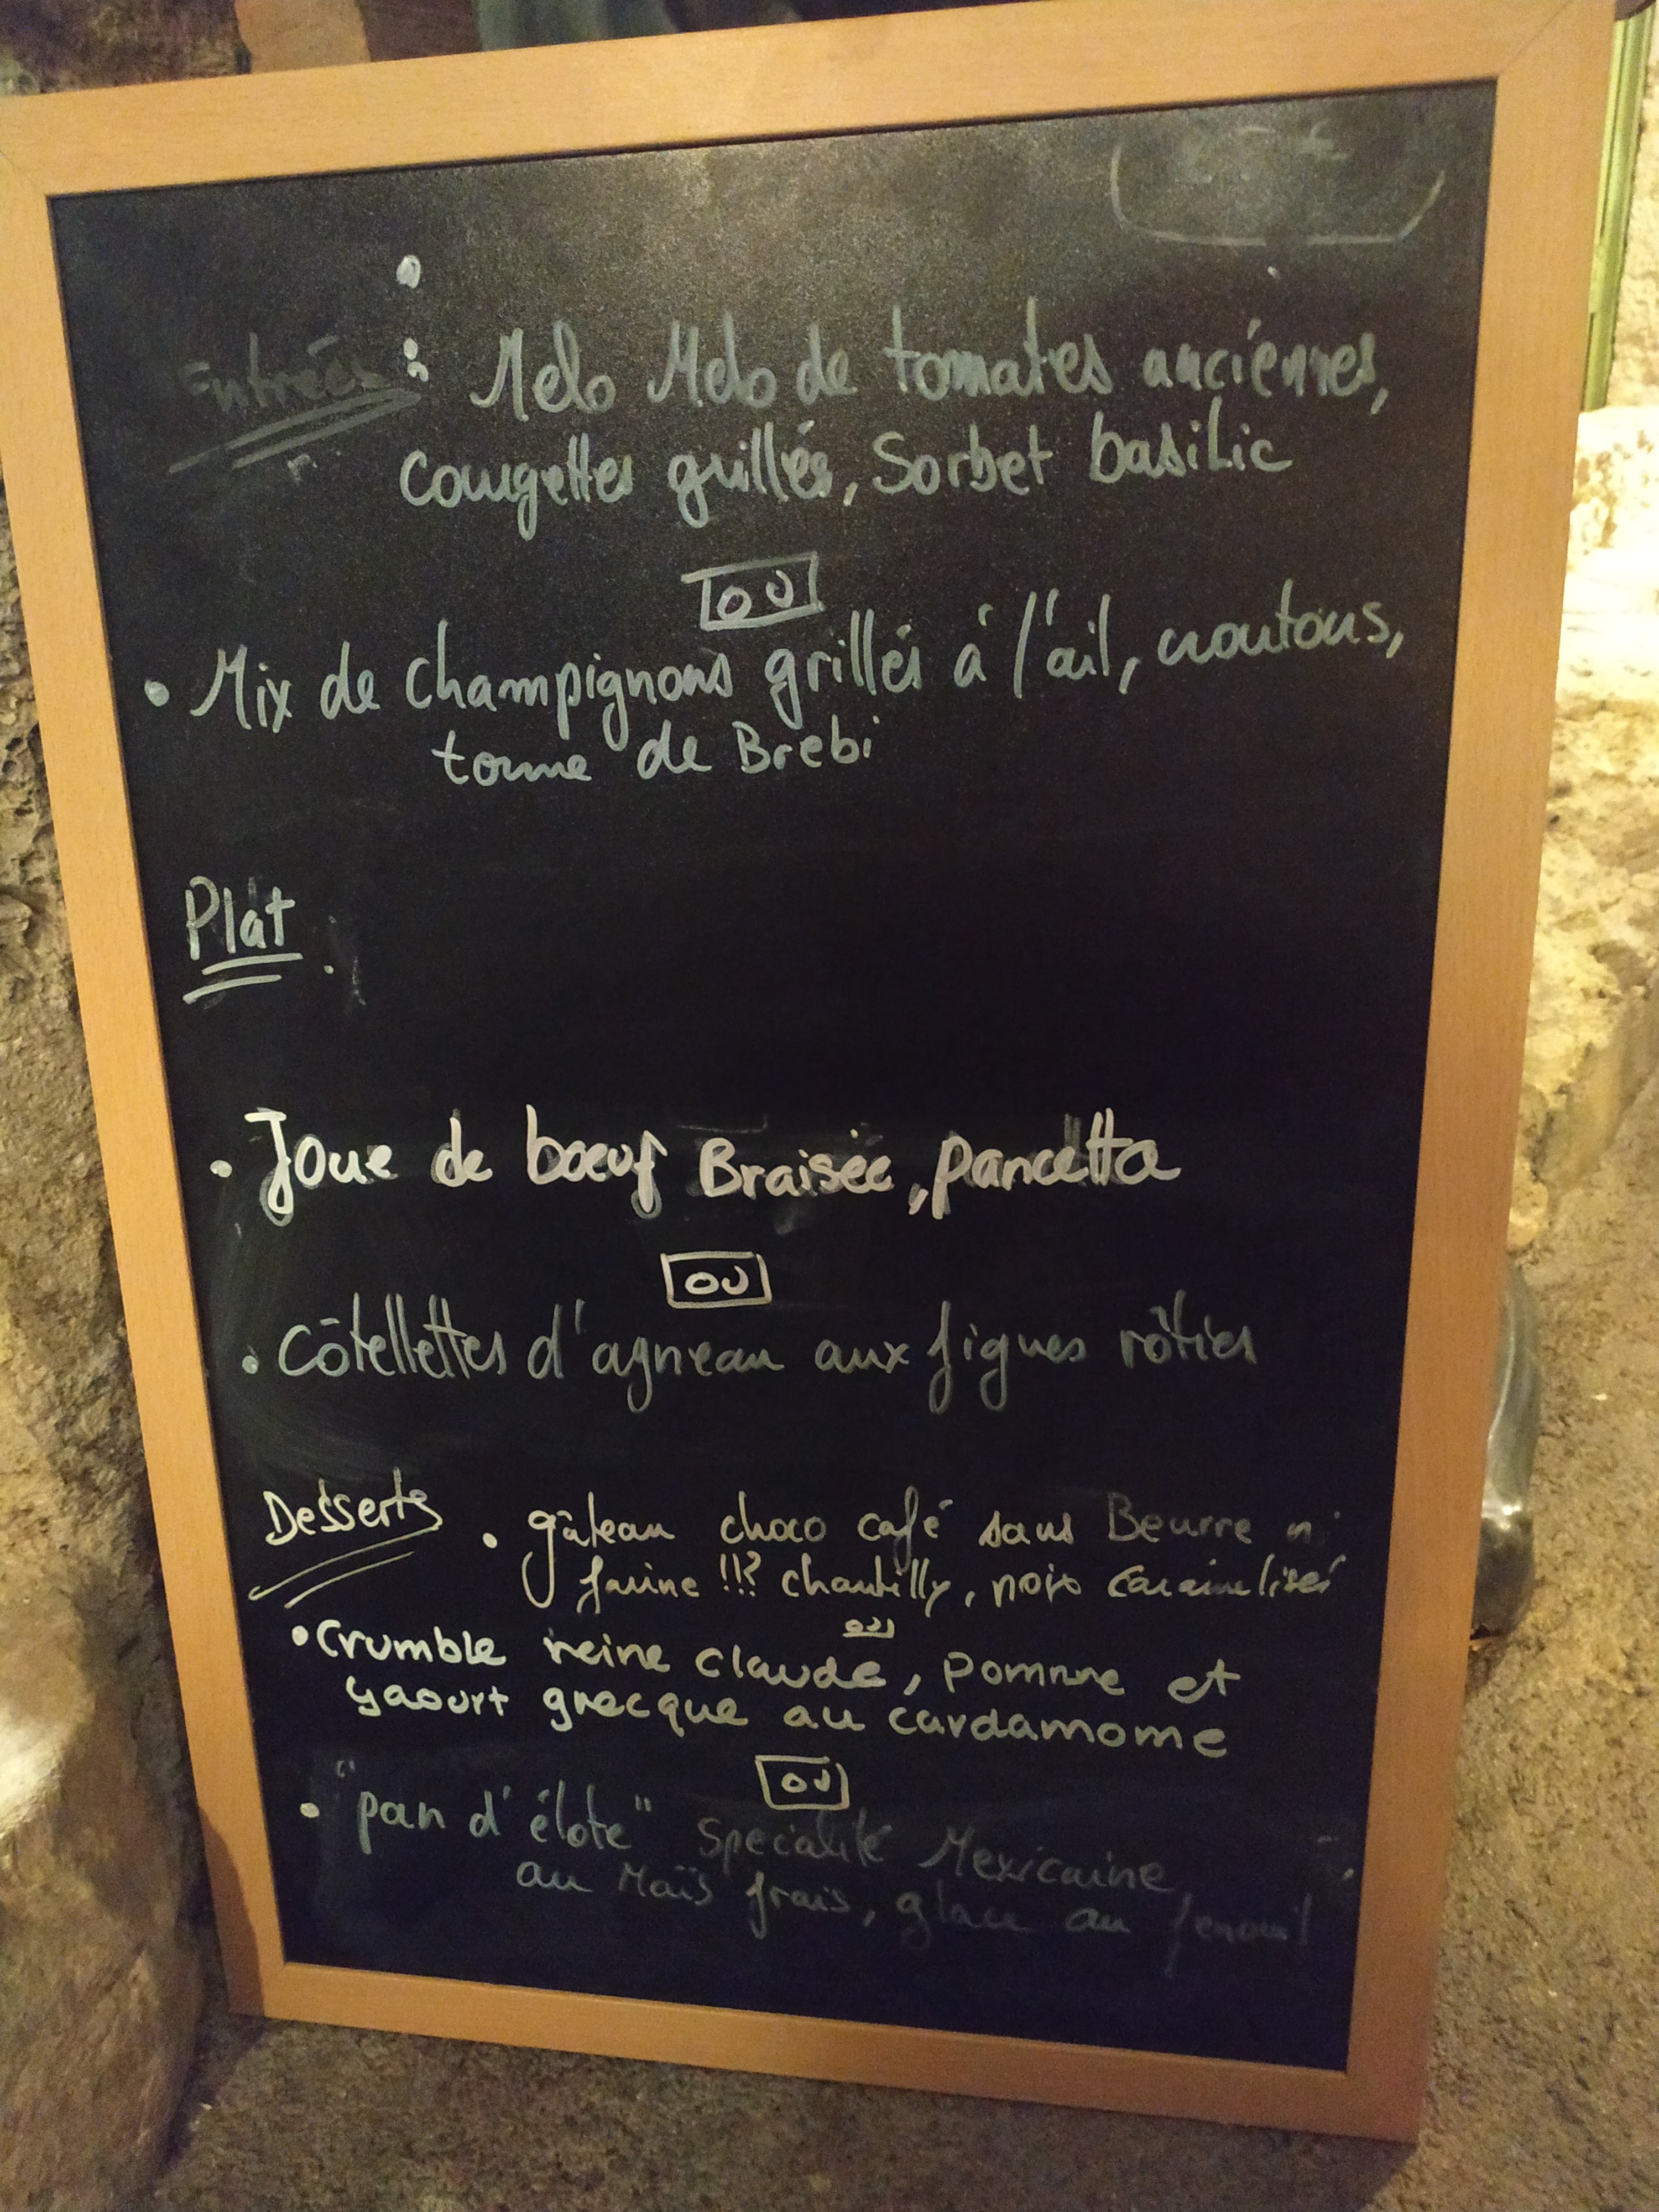 Entrées : Melo Melo de tomates anciennes,
Courgettes grillés, Sorbet basilic
ou
• Mix de champignons grillés à l'ail, croutons,
tomme de Brebi
Plat
• Joue de boeuf Braisée, pancetta
ou
• Côtellettes d'agneau aux figues rôties
Desserts • gâteau choco café sans Beurre ni
farine !!? chantilly, noix caramelisés
ou
• Crumble reine claude, pomme et
yaourt grecque au cardamome
ou
• "pan d'élote" Spécialité Mexicaine,
au Maïs frais, glace au fenouil